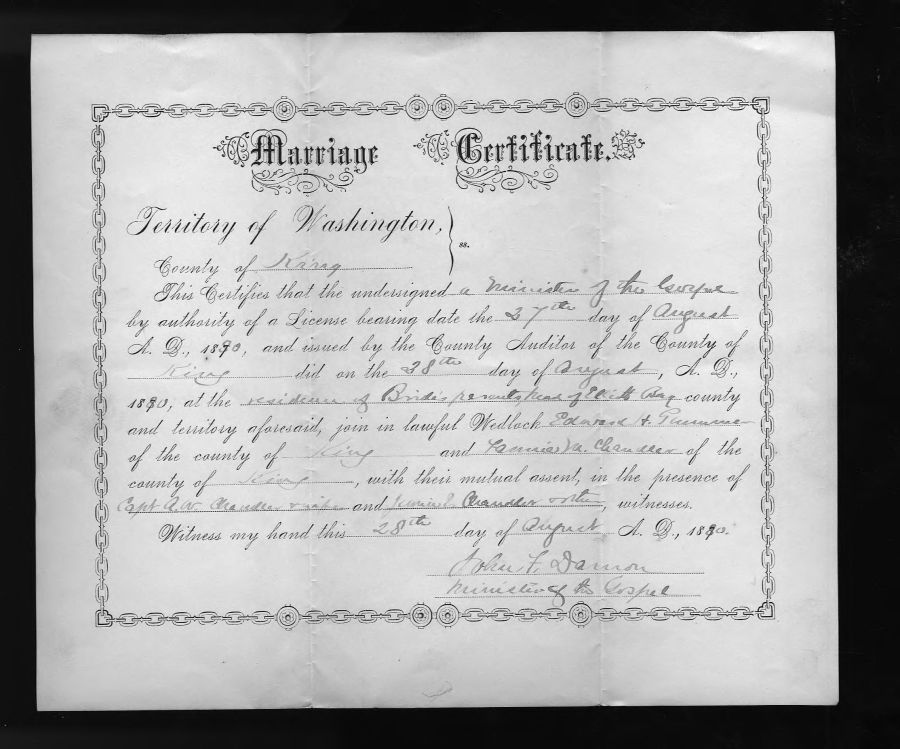 Marriage Certificate.
Territory of Washington,
ss.
County of King
This Certifies that the undersigned a Minister of the Gospel
by authority of a License bearing date the 27th day of August
A. D., 1890, and issued by the County Auditor of the County of
King did on the 28th day of August, A. D.,
1890, at the residence of Brides parents county
and territory aforesaid, join in lawful Wedlock Edward
of the county of King and Chandler of the
county of King, with their mutual assent, in the presence of
Capt A. W. Chandler & wife and Chandler, witnesses.
Witness my hand this 28th day of August A. D., 1890.
John F. Damon
Minister of the Gospel